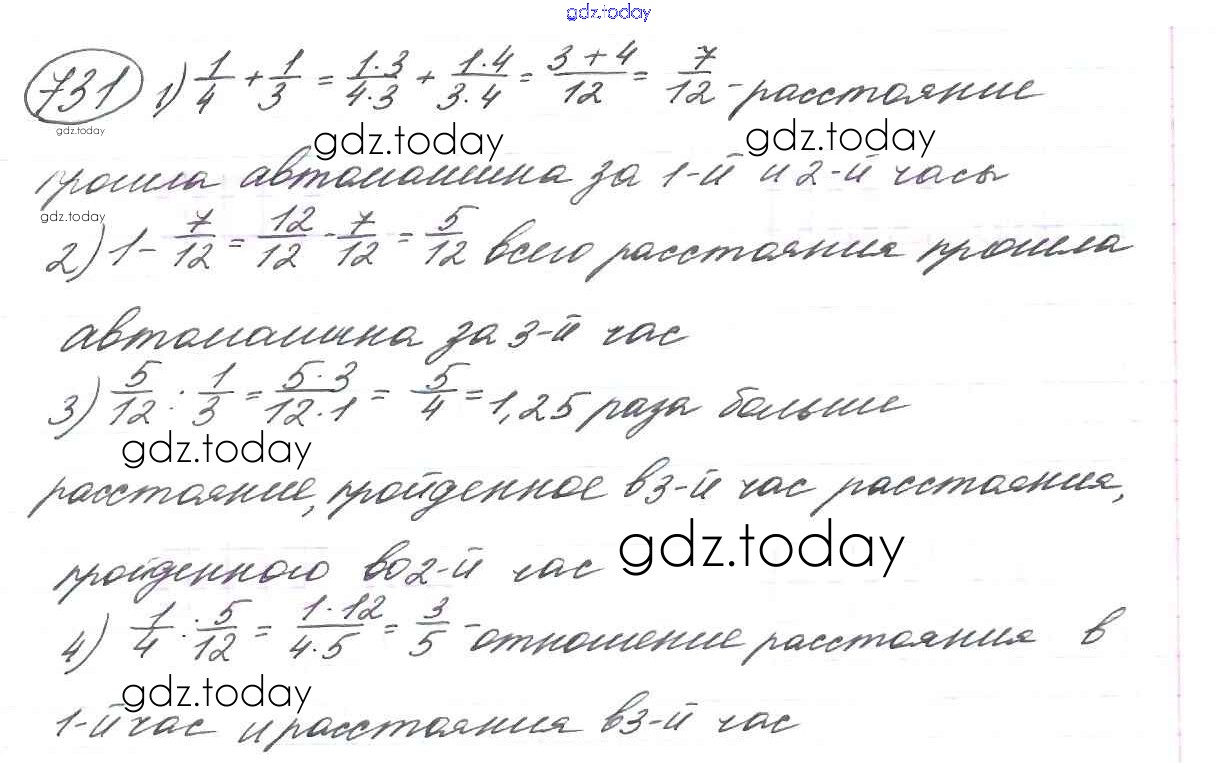 gdz.today
731 1) 1/4 + 1/3 = 1·3/4·3 + 1·4/3·4 = 3+4/12 = 7/12 - расстояние
gdz.today
gdz.today gdz.today
прошла автомашина за 1-й и 2-й часы
gdz.today
2) 1 - 7/12 = 12/12 - 7/12 = 5/12 всего расстояния прошла
автомашина за 3-й час
3) 5/12 : 1/3 = 5·3/12·1 = 5/4 = 1,25 раза больше
gdz.today
расстояние, пройденное в 3-й час расстояния,
gdz.today
пройденного во 2-й час
4) 1/4 : 5/12 = 1·12/4·5 = 3/5 - отношение расстояния в
gdz.today
1-й час и расстояния в 3-й час